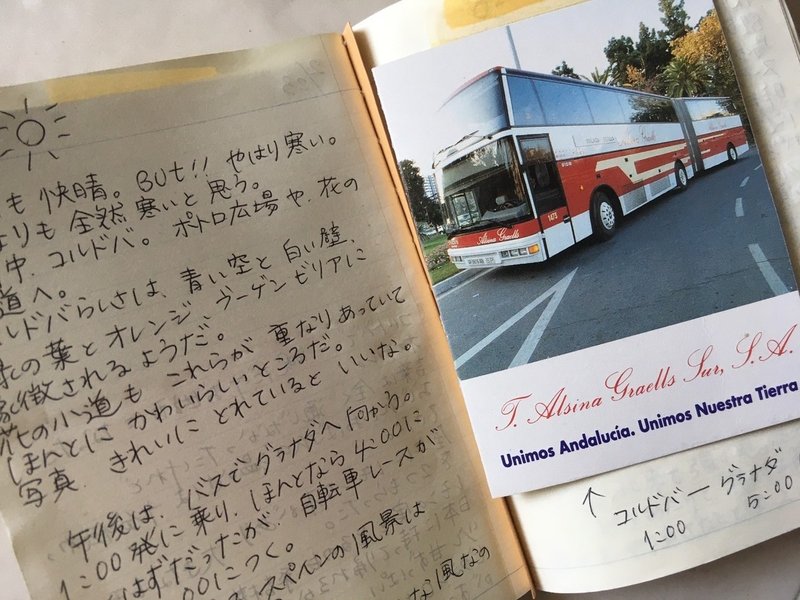 も 快晴。BUt!! やはり寒い。
よりも 全然 寒いと 思う。
中、コルドバ。ポトロ広場や、花の
道へ。
ルドバらしさは、青い空と 白い壁、
の葉とオレンジ、ブーゲンビリアに
象徴されるようだ。
花の小道も これらが 重なりあっていて
ほんとに かわいらしいところだ。
写真 きれいに とれていると いいな。
午後は、バスで グラナダへ 向かう。
1:00 発に 乗り、ほんとなら 4:00に
はずだったが 自転車レースが
00につく。
スペインの風景は
な風なの
Alsina Graells
1473
T. Alsina Graells Sur, S.A.
Unimos Andalucía. Unimos Nuestra Tierra
↑
コルドバ — グラナダ
1:00 5:00